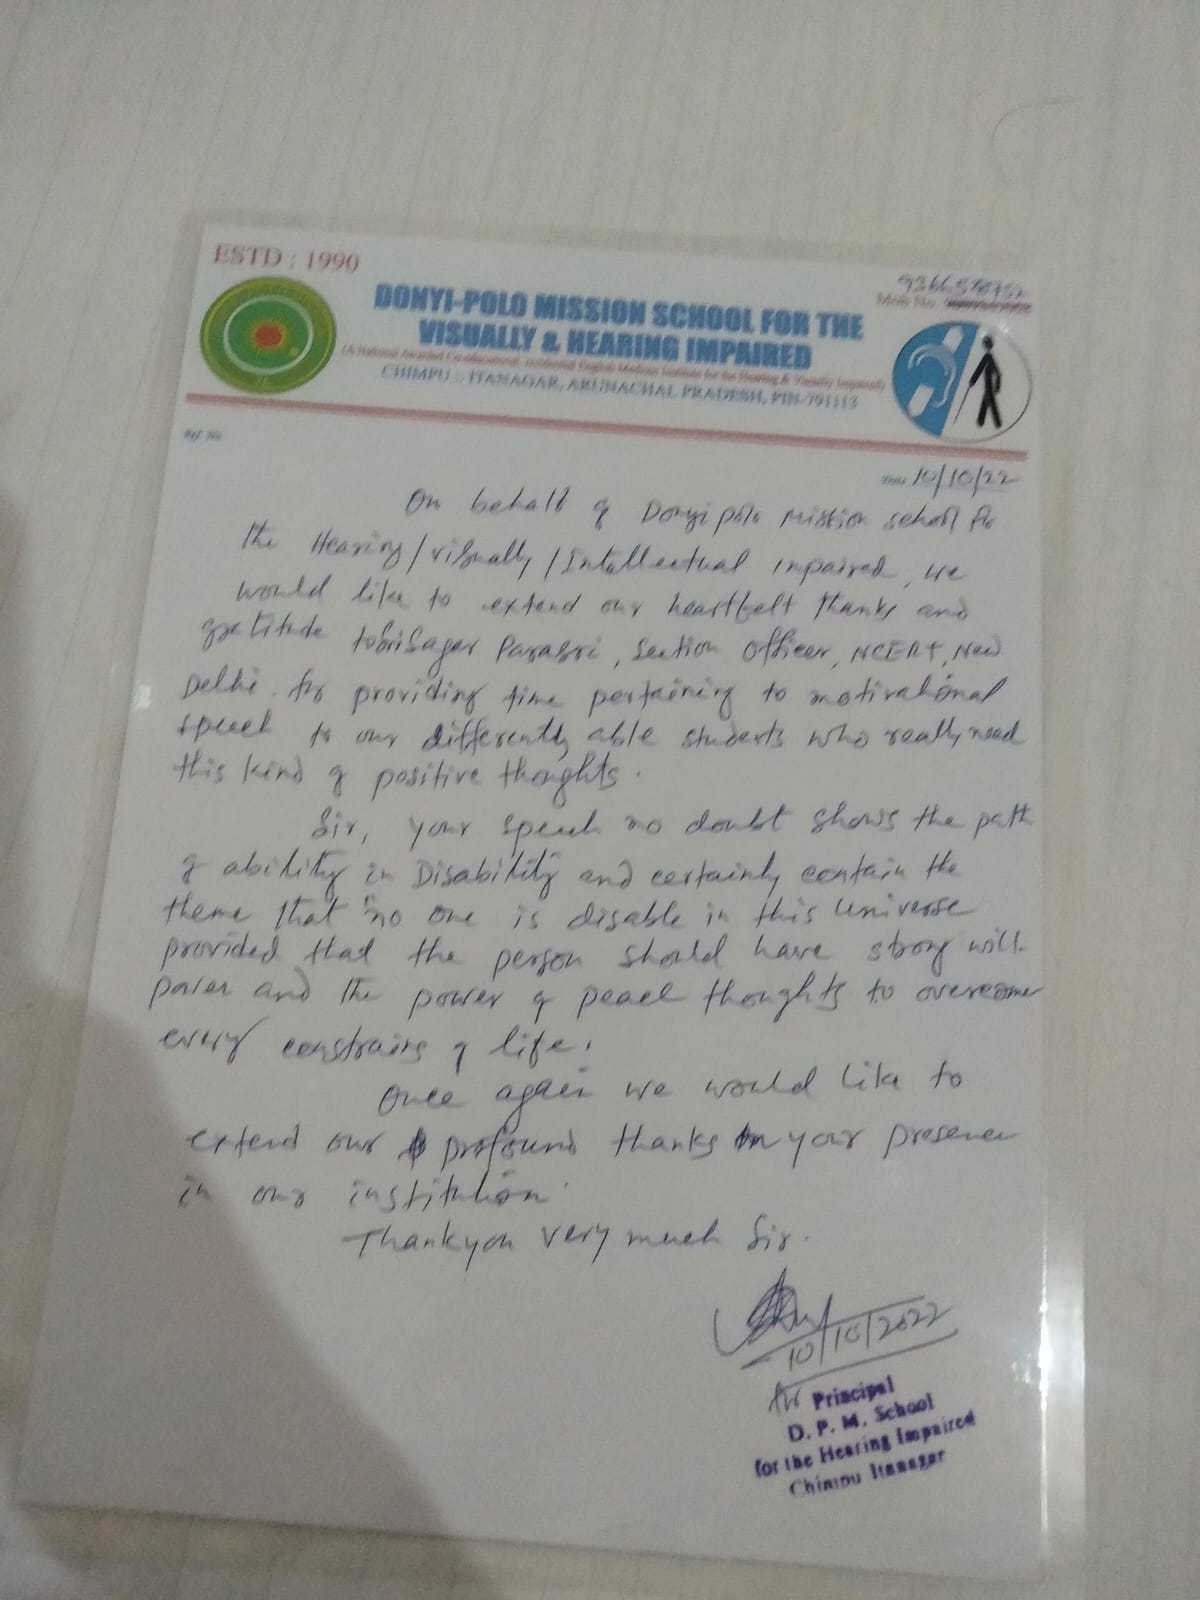 ESTD : 1990
9366578752
Mob No.
DONYI-POLO MISSION SCHOOL FOR THE
VISUALLY & HEARING IMPAIRED
(A National Awarded Co-educational, residential English Medium Institute for the Hearing & Visually Impaired)
CHIMPU :: ITANAGAR, ARUNACHAL PRADESH, PIN-791113
Ref. No.
Date 10/10/22
On behalf of Donyi polo Mission School for
the Hearing/visually/Intellectual impaired, we
would like to extend our heartfelt thanks and
gratitude to Sri Sagar Parashri, Section Officer, NCERT, New
Delhi for providing time pertaining to motivational
speech to our differently able students who really need
this kind of positive thoughts.
Sir, your speech no doubt shows the path
of ability in Disability and certainly contain the
theme that "no one is disable in this Universe
provided that the person should have strong will
power and the power of peace thoughts to overcome
every constrains of life.
Once again we would like to
extend our profound thanks on your presence
in our institution.
Thankyou very much Sir.
10/10/2022
for Principal
D. P. M. School
for the Hearing Impaired
Chimpu Itanagar